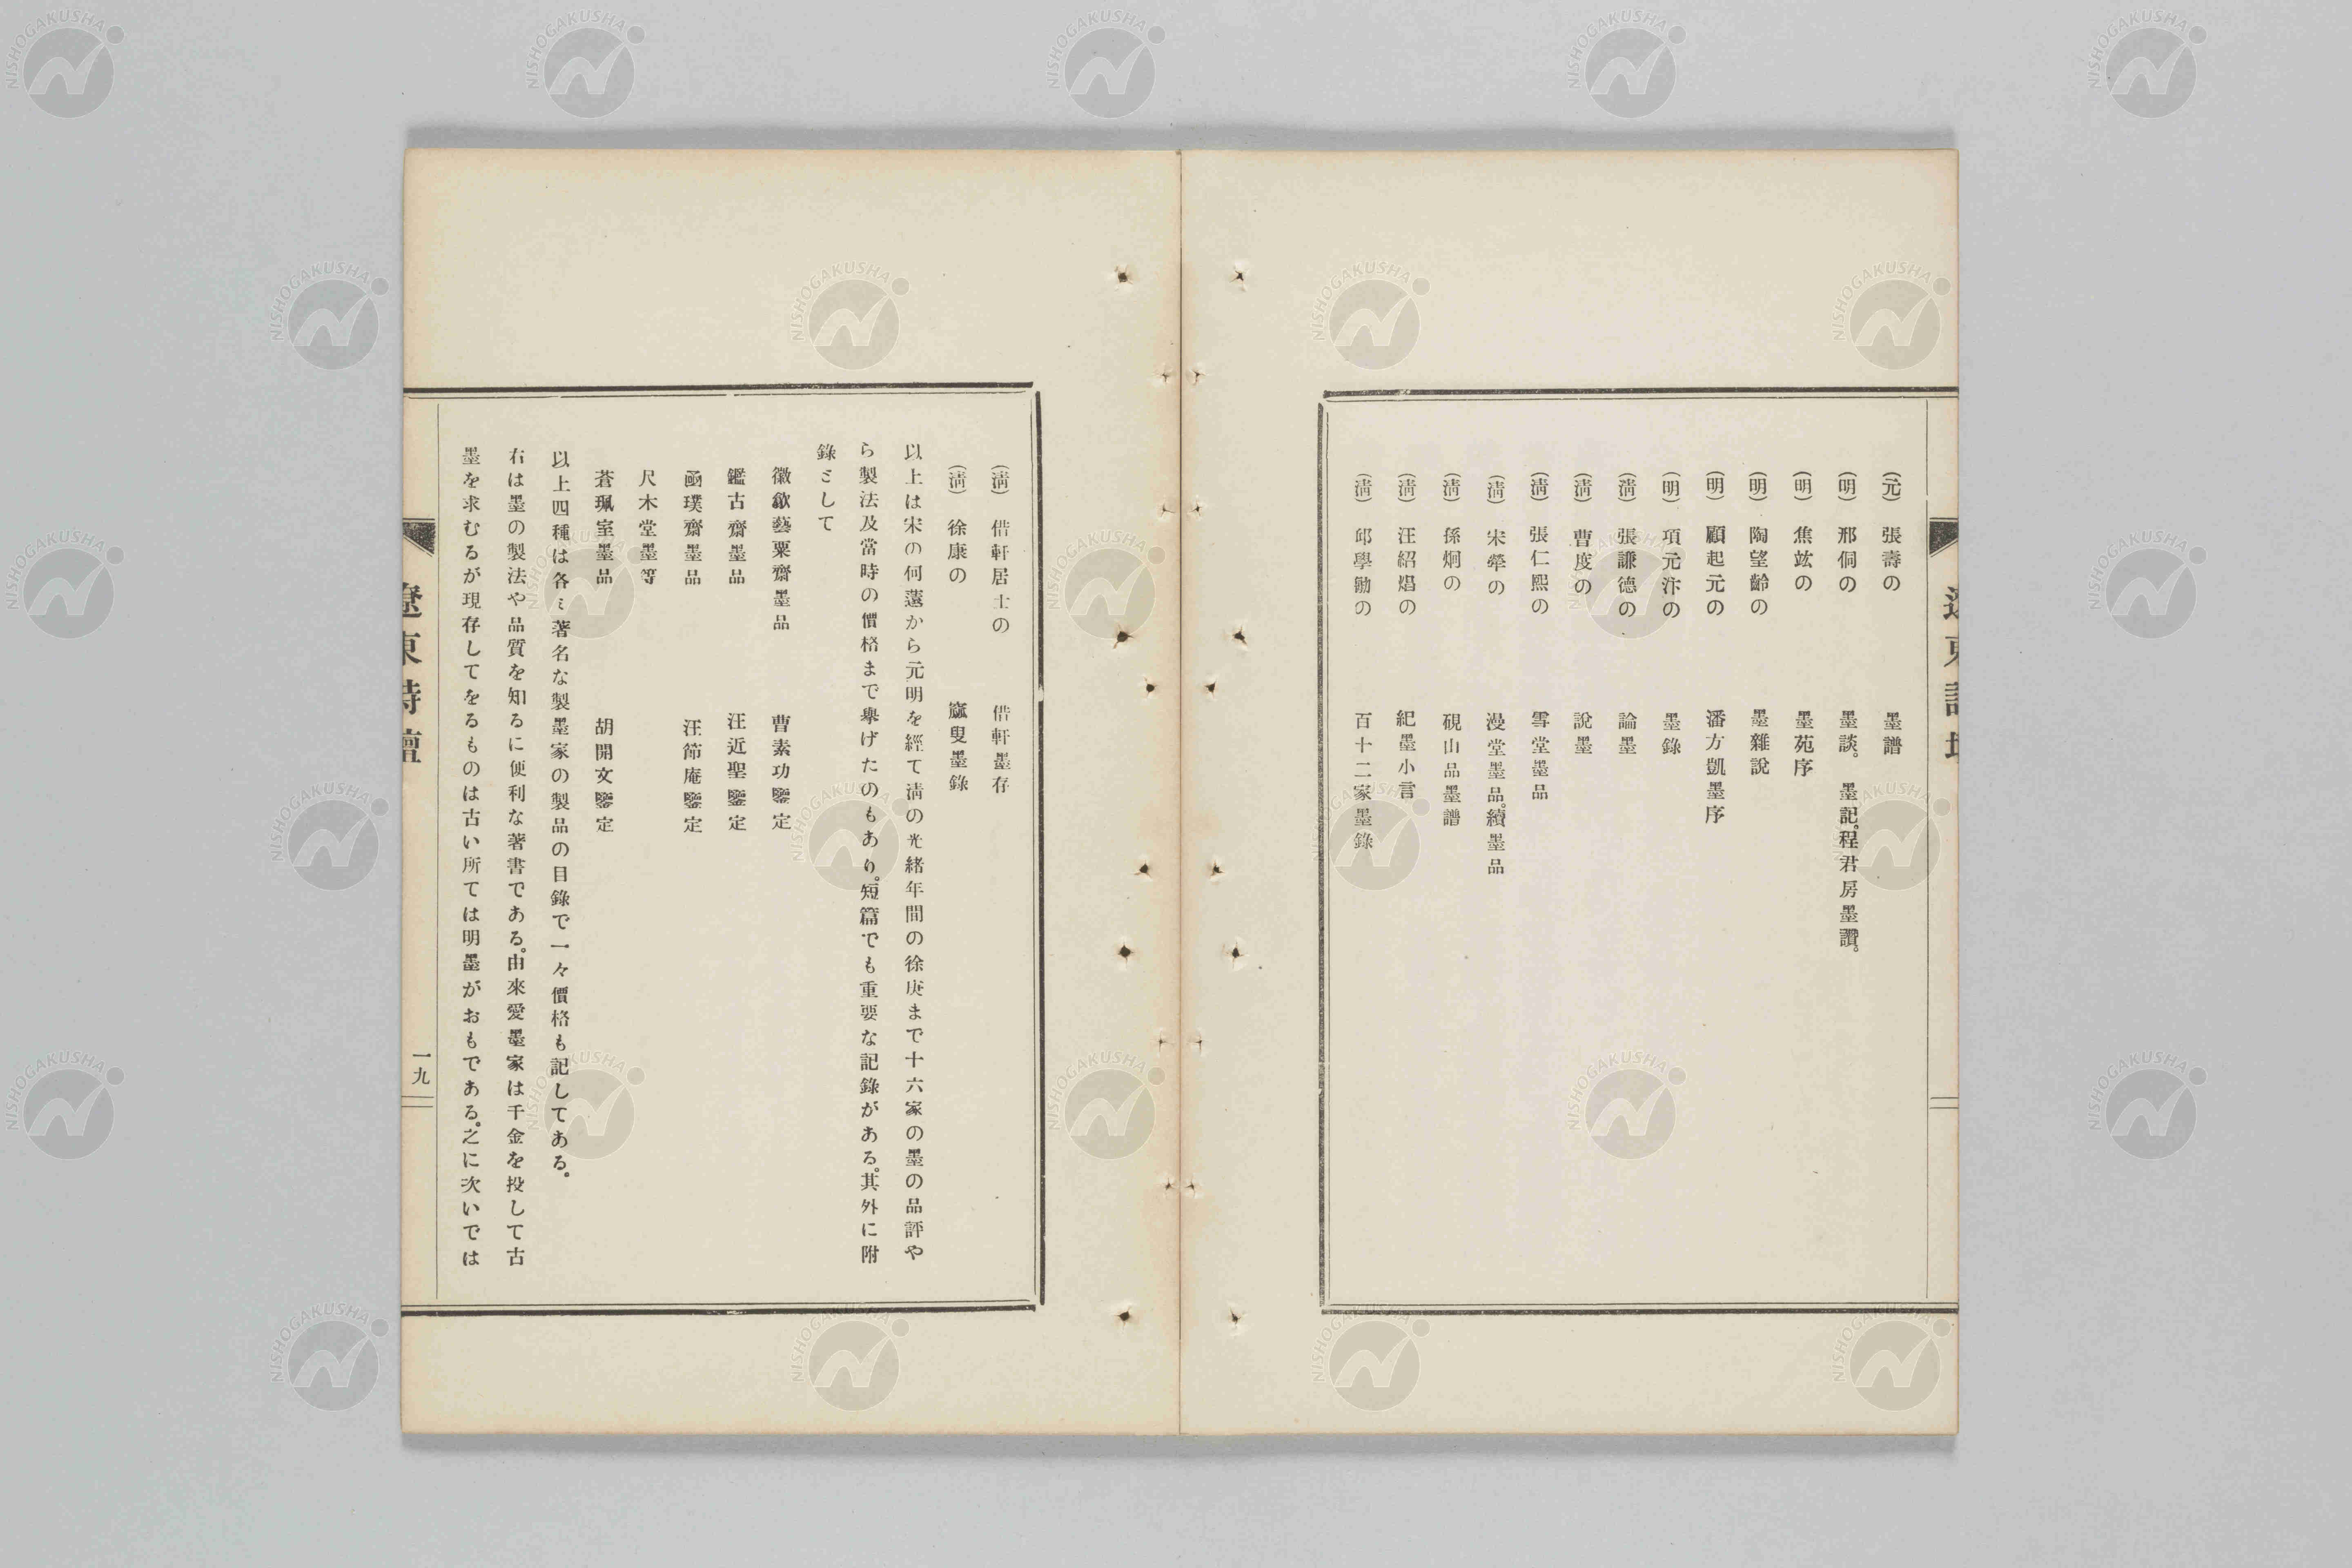 (元) 張壽の 墨譜
(明) 邢侗の 墨談。 墨記。程君房墨讚。
(明) 焦竑の 墨苑序
(明) 陶望齡の 墨雜說
(明) 顧起元の 潘方凱墨序
(明) 項元汴の 墨錄
(淸) 張謙德の 論墨
(淸) 曹度の 說墨
(淸) 張仁熙の 雪堂墨品
(淸) 宋犖の 漫堂墨品。續墨品
(淸) 孫炯の 硯山品墨譜
(淸) 汪紹焻の 紀墨小言
(淸) 邱學勄の 百十二家墨錄
(淸) 借軒居士の 借軒墨存
(淸) 徐康の 窳叟墨錄
以上は宋の何薳から元明を經て淸の光緒年間の徐庚まで十六家の墨の品評や
ら製法及當時の價格まで擧げたのもあり。短篇でも重要な記錄がある。其外に附
錄ミして
徽歙藝粟齋墨品 曹素功鑒定
鑑古齋墨品 汪近聖鑒定
函璞齋墨品 汪節庵鑒定
尺木堂墨等
蒼珮室墨品 胡開文鑒定
以上四種は各ミ著名な製墨家の製品の目錄で一々價格も記してある。
右は墨の製法や品質を知るに便利な著書である。由來愛墨家は千金を投して古
墨を求むるが現存してをるものは古い所ては明墨がおもである。之に次いでは
遼東詩壇
一九
NISHOGAKUSHA